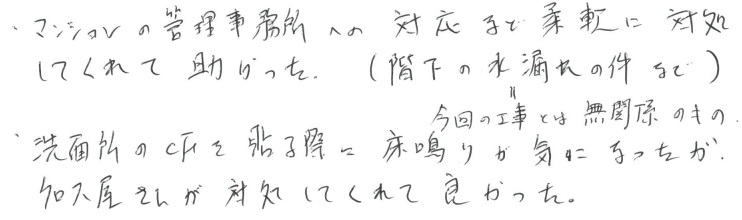 ・マンションの管理事務所への対応など柔軟に対処
してくれて助かった。(階下の水漏れの件など)
〃
今回の工事とは無関係のもの.
・洗面所のCFを貼る際に床鳴りが気になったが.
クロス屋さんが対処してくれて良かった。